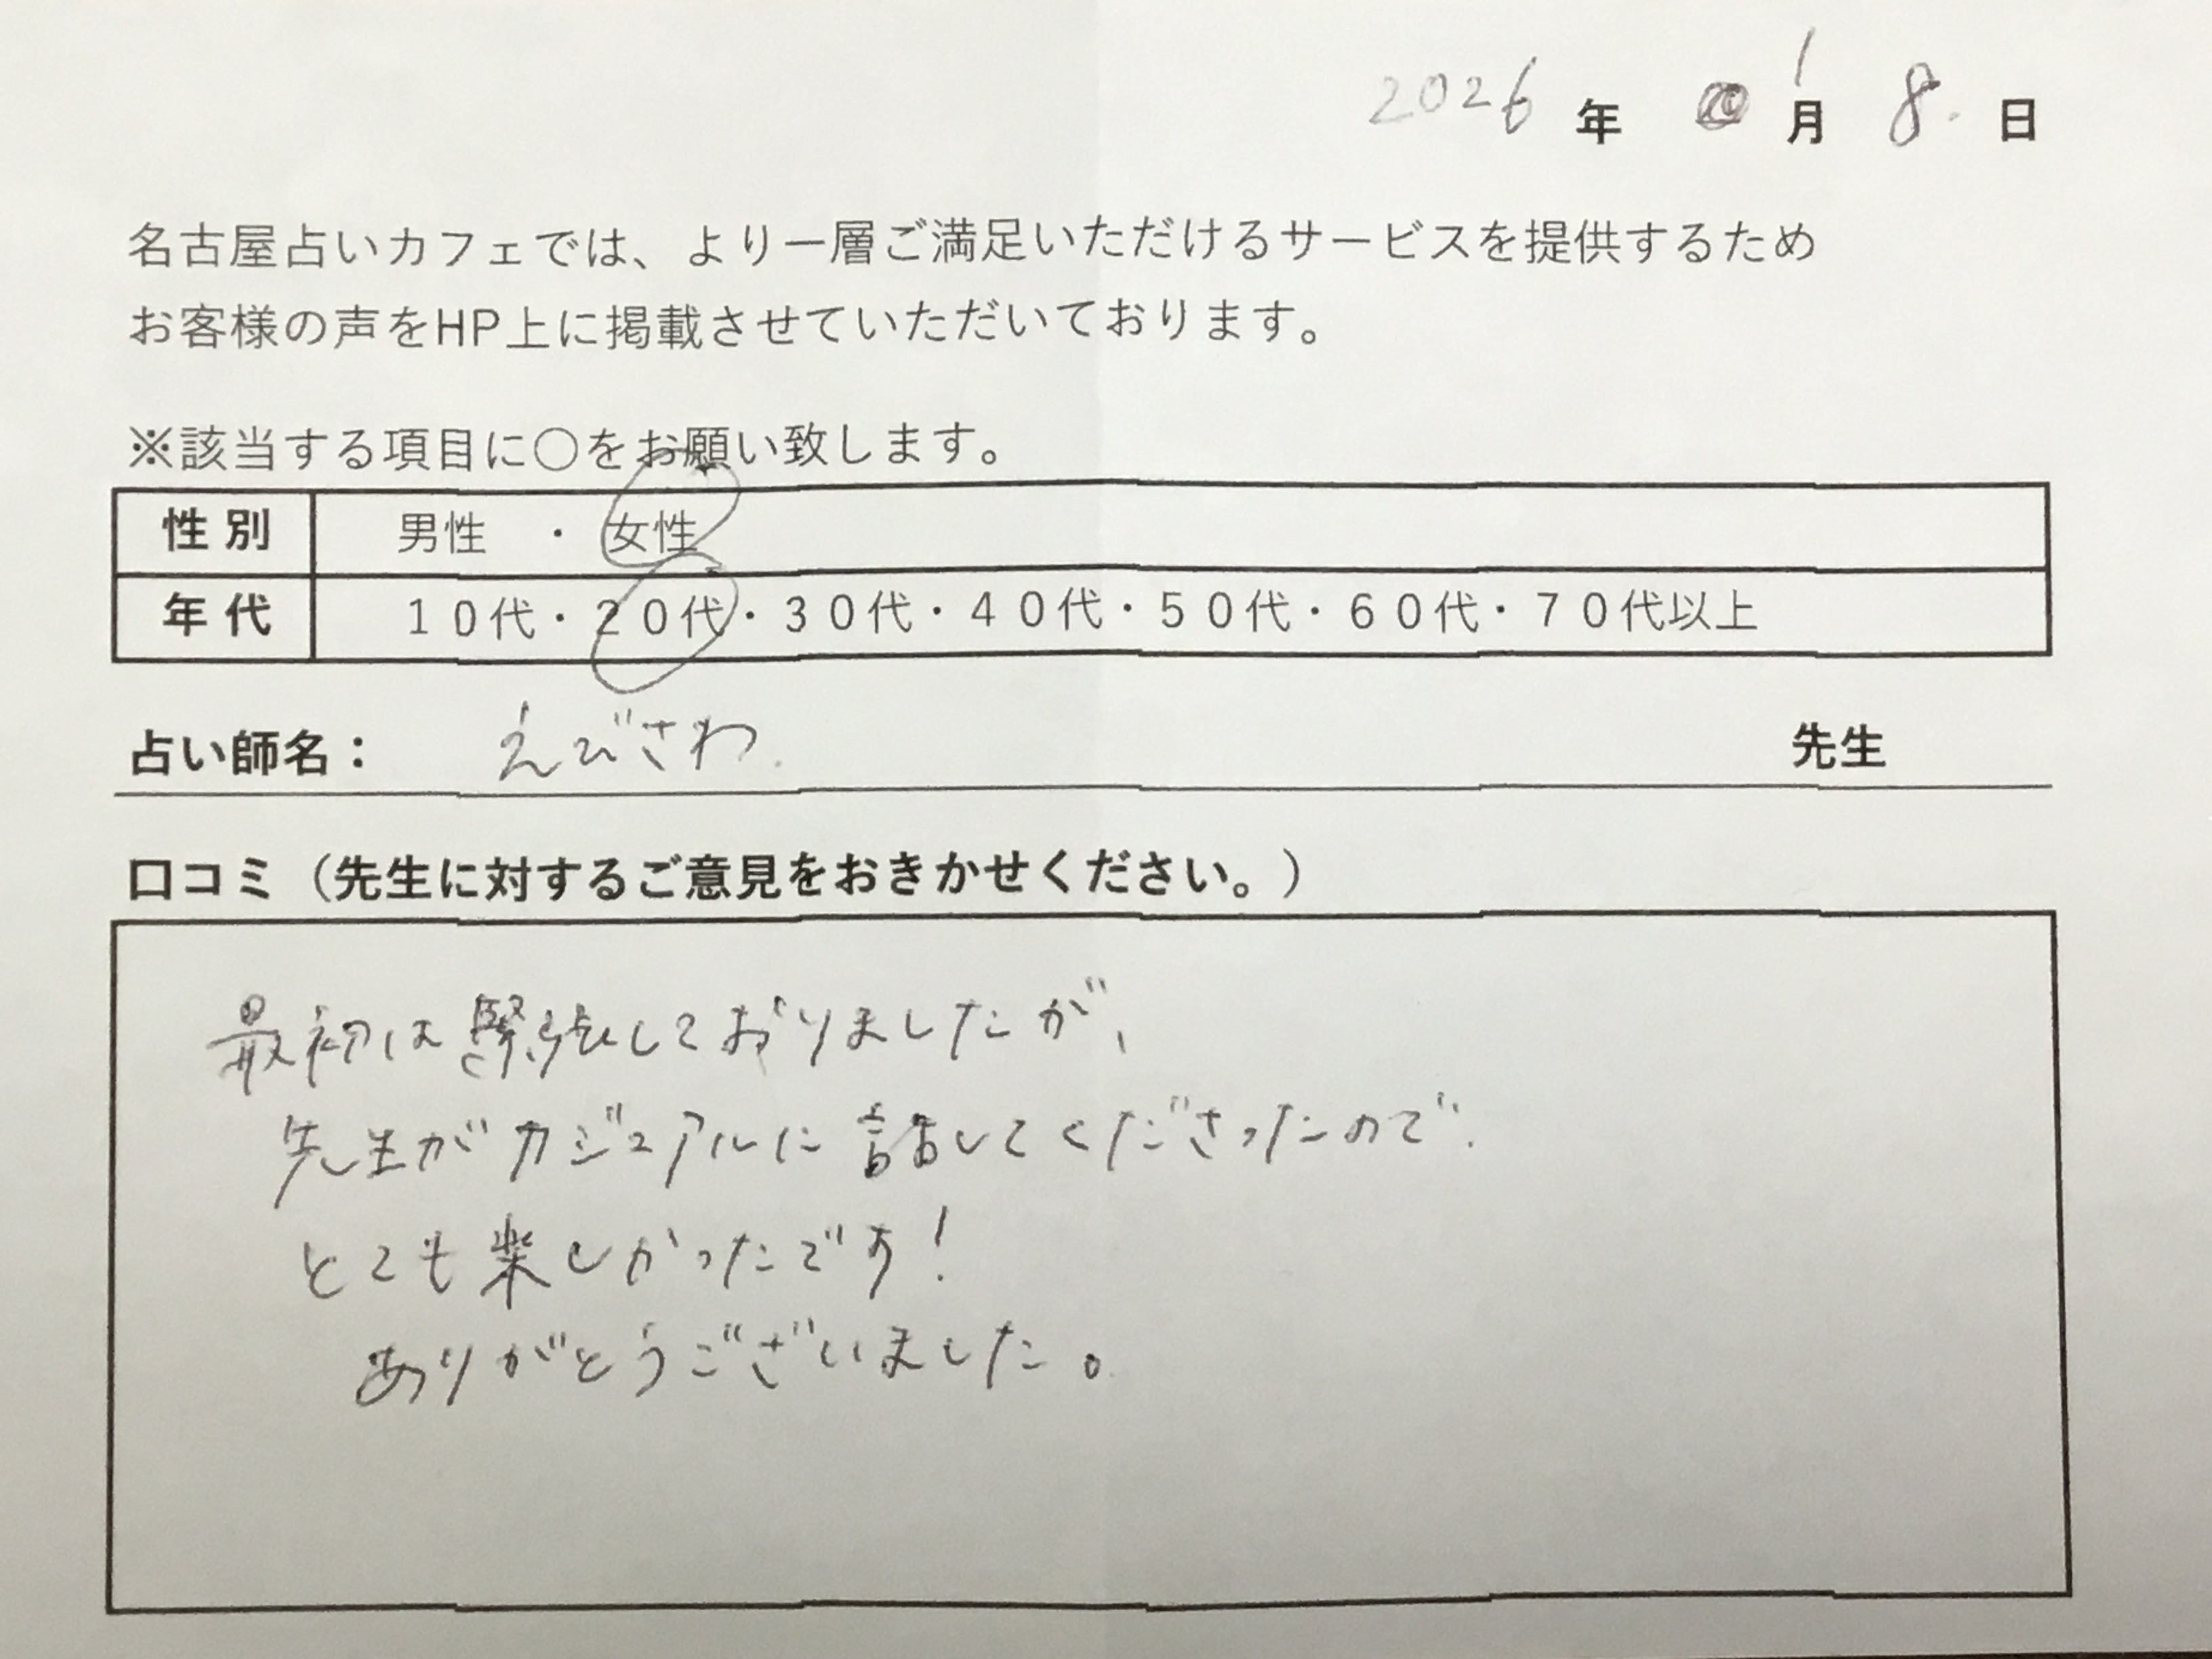 2026 年 1 月 8. 日
名古屋占いカフェでは、より一層ご満足いただけるサービスを提供するため
お客様の声をHP上に掲載させていただいております。
※該当する項目に○をお願い致します。
性別 男性 ・ 女性
年代 10代・20代・30代・40代・50代・60代・70代以上
占い師名： えびさわ. 先生
口コミ（先生に対するご意見をおきかせください。）
最初は緊張しておりましたが、
先生がカジュアルに話してくださったので、
とても楽しかったです！
ありがとうございました。